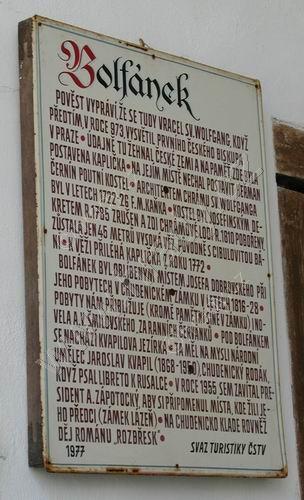 Bolfánek
POVĚST VYPRÁVÍ, ŽE SE TUDY VRACEL SV. WOLFGANG, KDYŽ
PŘEDTÍM V ROCE 973 VYSVĚTIL PRVNÍHO ČESKÉHO BISKUPA
V PRAZE • ÚDAJNĚ TU ŽEHNAL ČESKÉ ZEMI A NA PAMĚŤ ZDE BYLA
POSTAVENA KAPLIČKA • NA JEJÍM MÍSTĚ NECHAL POSTAVIT HEŘMAN
ČERNÍN POUTNÍ KOSTEL • ARCHITEKTEM CHRÁMU SV. WOLFGANGA
BYL V LETECH 1722-26 F. M. KAŇKA • KOSTEL BYL JOSEFINSKÝM DE-
KRETEM R. 1785 ZRUŠEN A ZDI CHRÁMOVÉ LODI R. 1810 POBOŘENY,
ZŮSTALA JEN 45 METRŮ VYSOKÁ VĚŽ, PŮVODNĚ S CIBULOVITOU BÁ-
NÍ • K VĚŽI PŘILÉHÁ KAPLIČKA Z ROKU 1772 •
BOLFÁNEK BYL OBLÍBENÝM MÍSTEM JOSEFA DOBROVSKÉHO PŘI
JEHO POBYTECH V CHUDENICKÉM ZÁMKU V LETECH 1816-28 •
POBYTY NÁM PŘIBLIŽUJE (KROMĚ PAMĚTNÍ SÍNĚ V ZÁMKU) NO-
VELA A. V. ŠMILOVSKÉHO „ZA RANNÍCH ČERVÁNKŮ“ • POD BOLFÁNKEM
SE NACHÁZÍ KVAPILOVA JEZÍRKA • TA MĚL NA MYSLI NÁRODNÍ
UMĚLEC JAROSLAV KVAPIL (1868-1950), CHUDENICKÝ RODÁK,
KDYŽ PSAL LIBRETO K RUSALCE • V ROCE 1955 SEM ZAVÍTAL PRE-
SIDENT A. ZÁPOTOCKÝ, ABY SI PŘIPOMENUL MÍSTA, KDE ŽILI JE-
HO PŘEDCI (ZÁMEK LÁZEŇ) • NA CHUDENICKO KLADE ROVNĚŽ
DĚJ ROMÁNU „ROZBŘESK“ •
1977 SVAZ TURISTIKY ČSTV